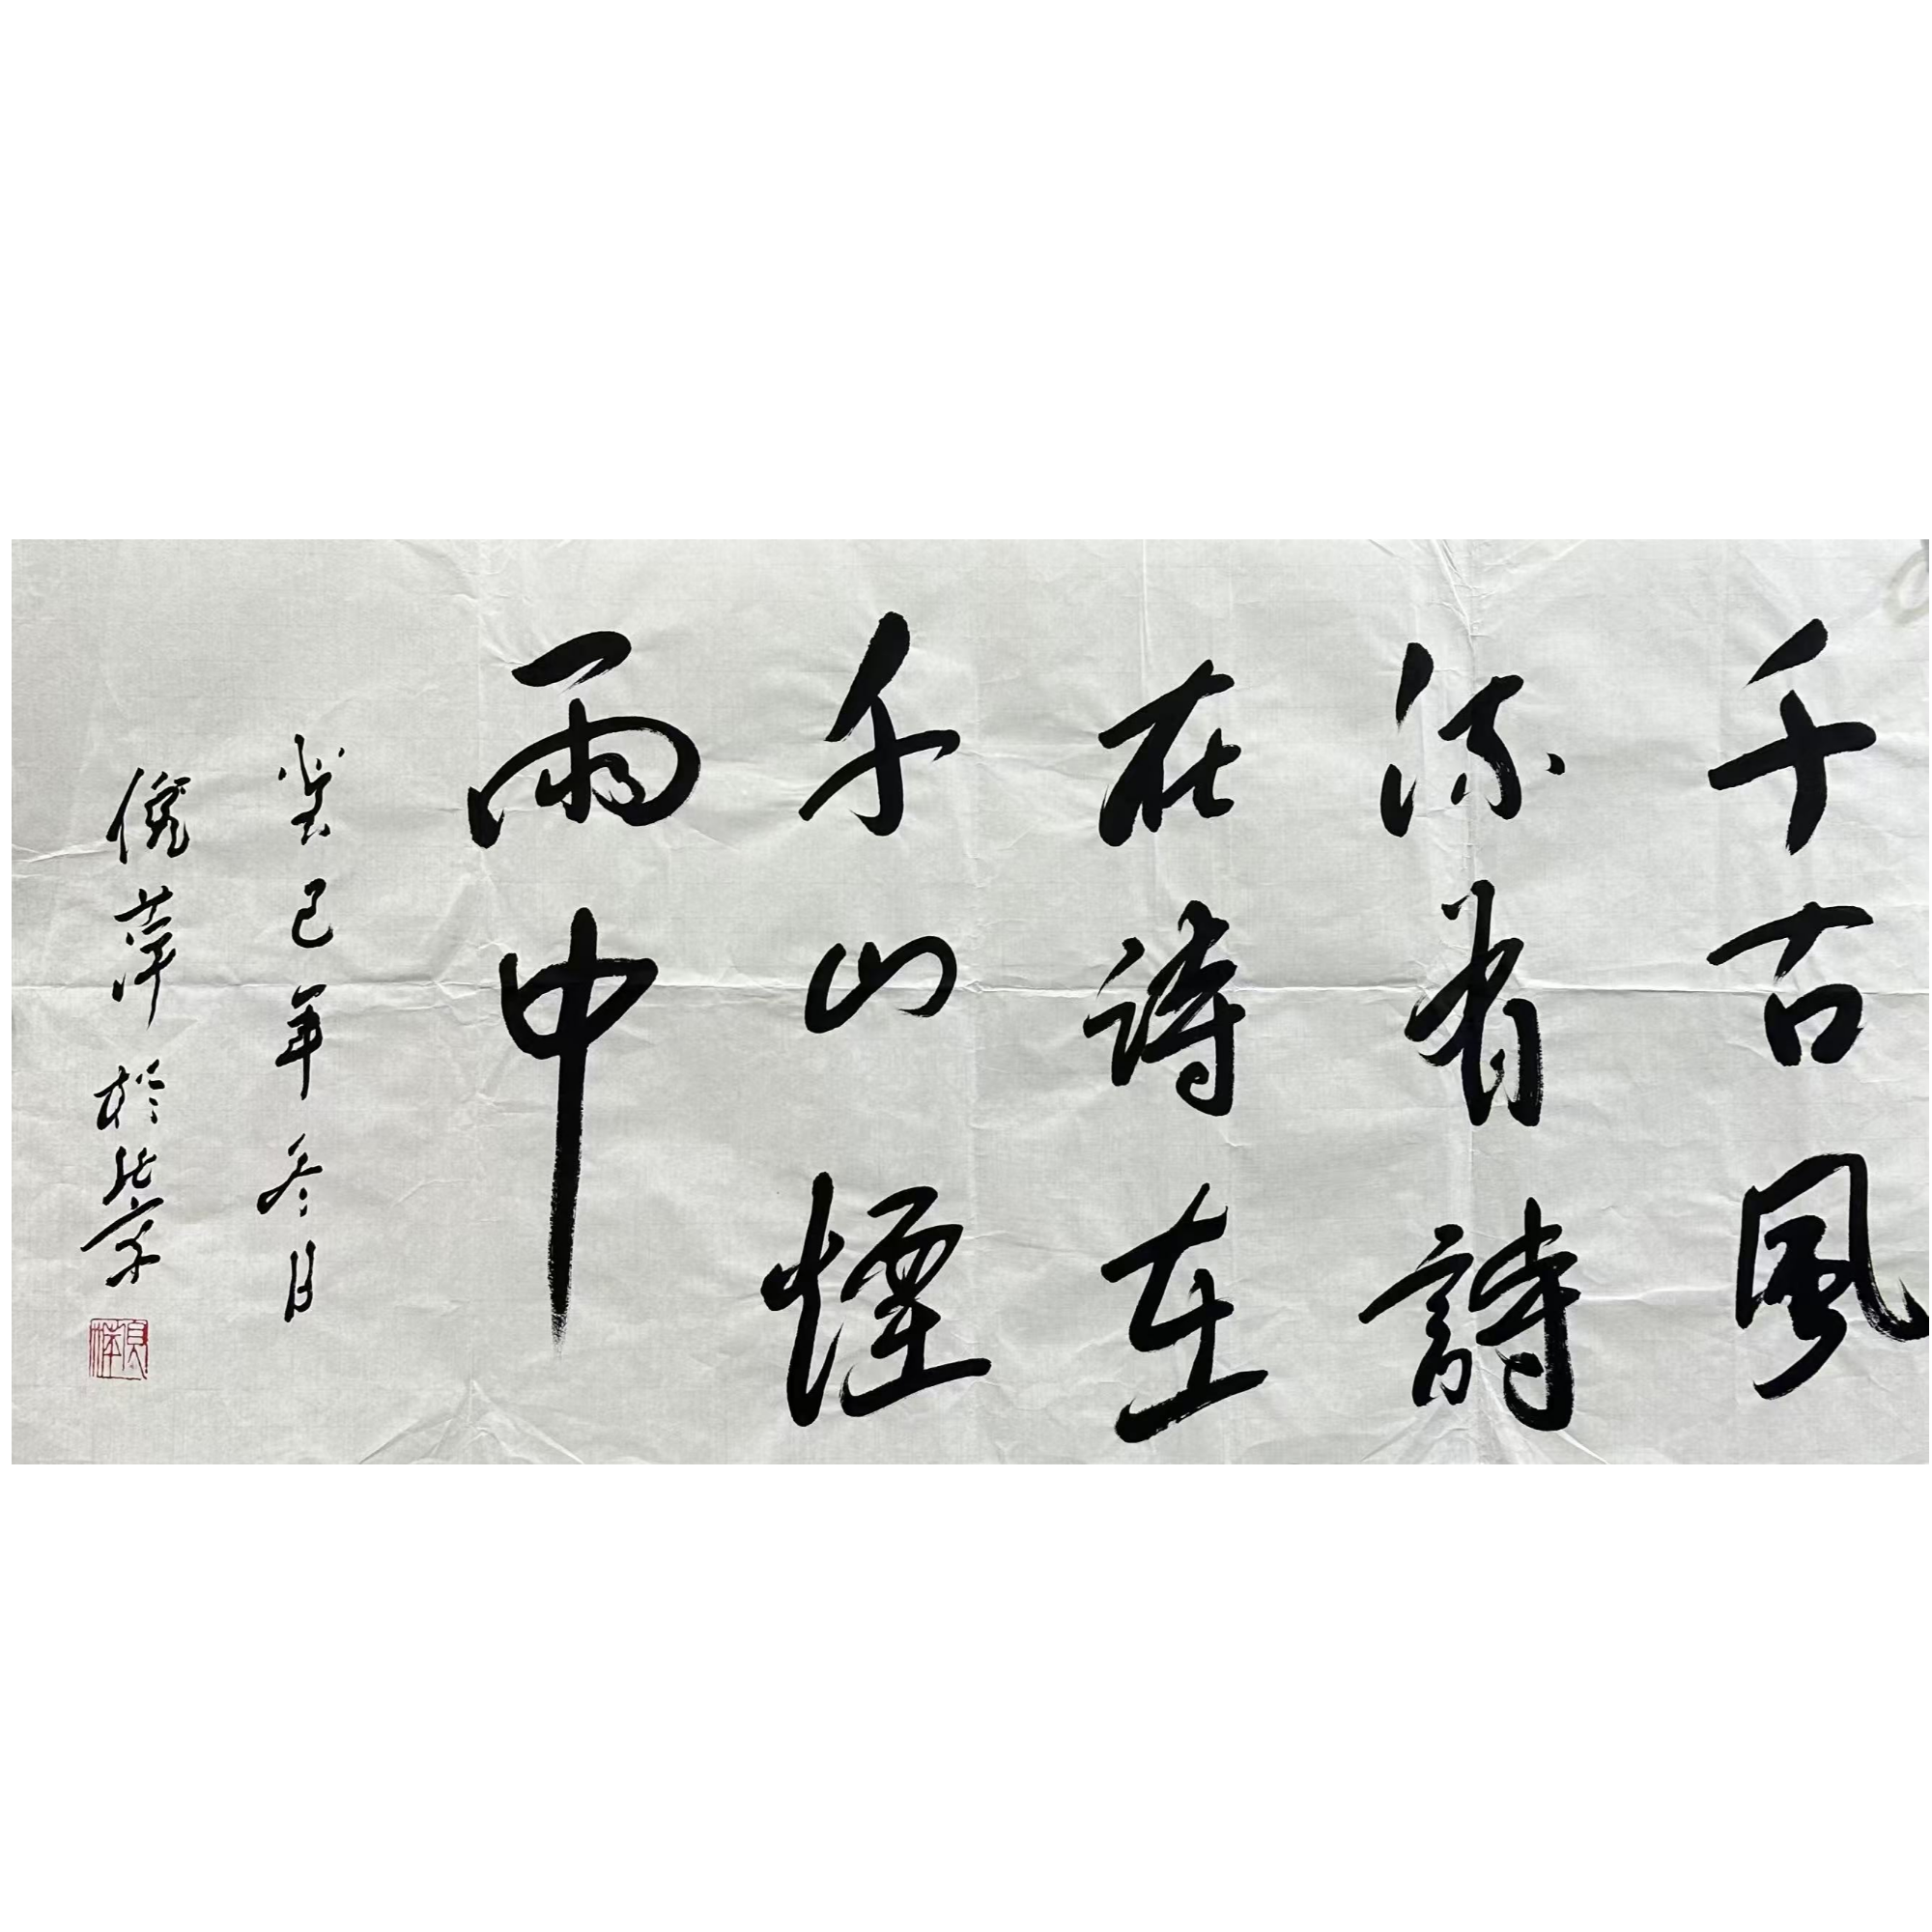 千古風
流有詩
在詩在
千山煙
雨中
癸巳年冬月
倪萍於北京